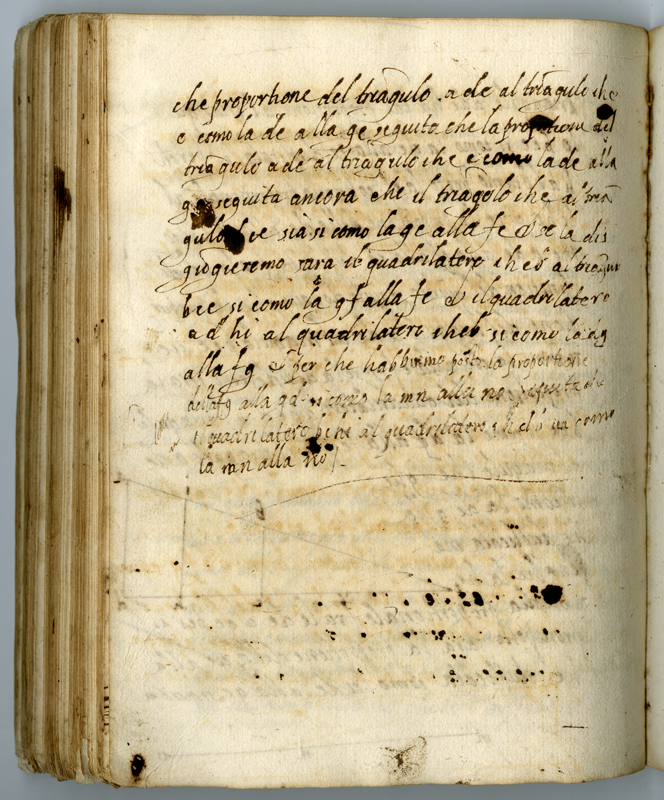 che proportione del triãgulo . a de al triãgulo ihc
e como la de alla ge seguita che la proportione del
triãgulo a de al triãgulo ihc e como la de alla
ge seguita ancora che il triãgolo ihc al triã
gulo bce sia si como la ge alla fe & se la dis
giogieremo sara il quadrilatero iheb al triãgu
bce si como la gf alla fe & il quadrilatero
ad hi al quadrilatero iheb si como la dg
alla fg & per che habbiamo posto la proportione
della fg alla gd si como la mn alla no seguita che
il quadrilatero al quadrilatero va como
la mn alla no